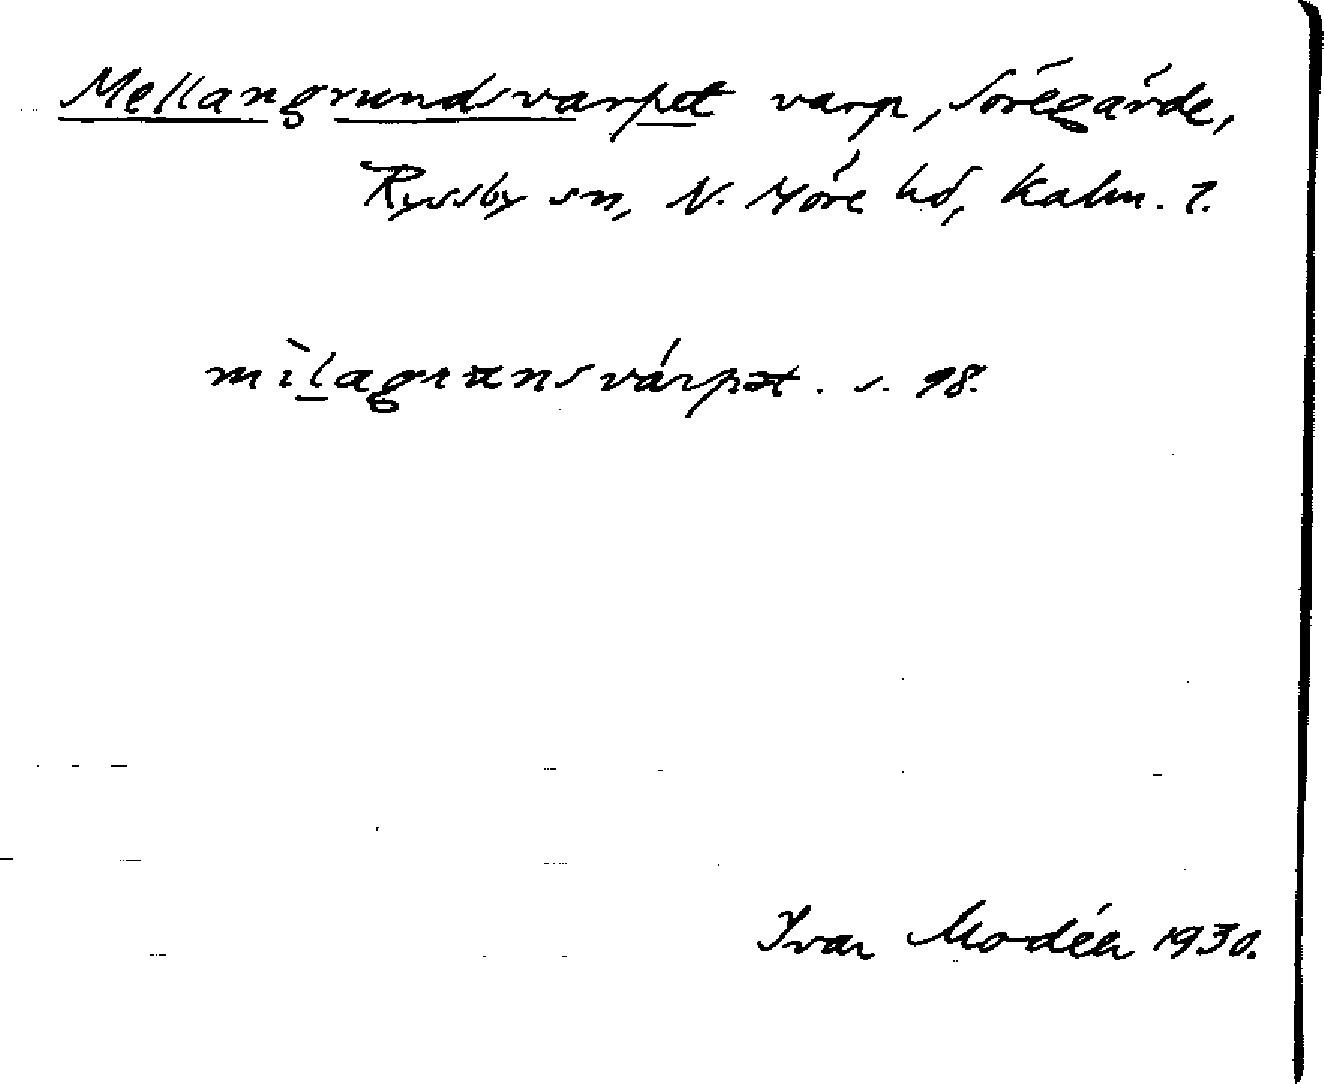 Mellangrundsvarpet varp, Söregärde,
Ryssby sn, N. Möre hd, Kalm. l.
mìlagrunsvárpət. s. 98.
Ivar Modéer 1930.